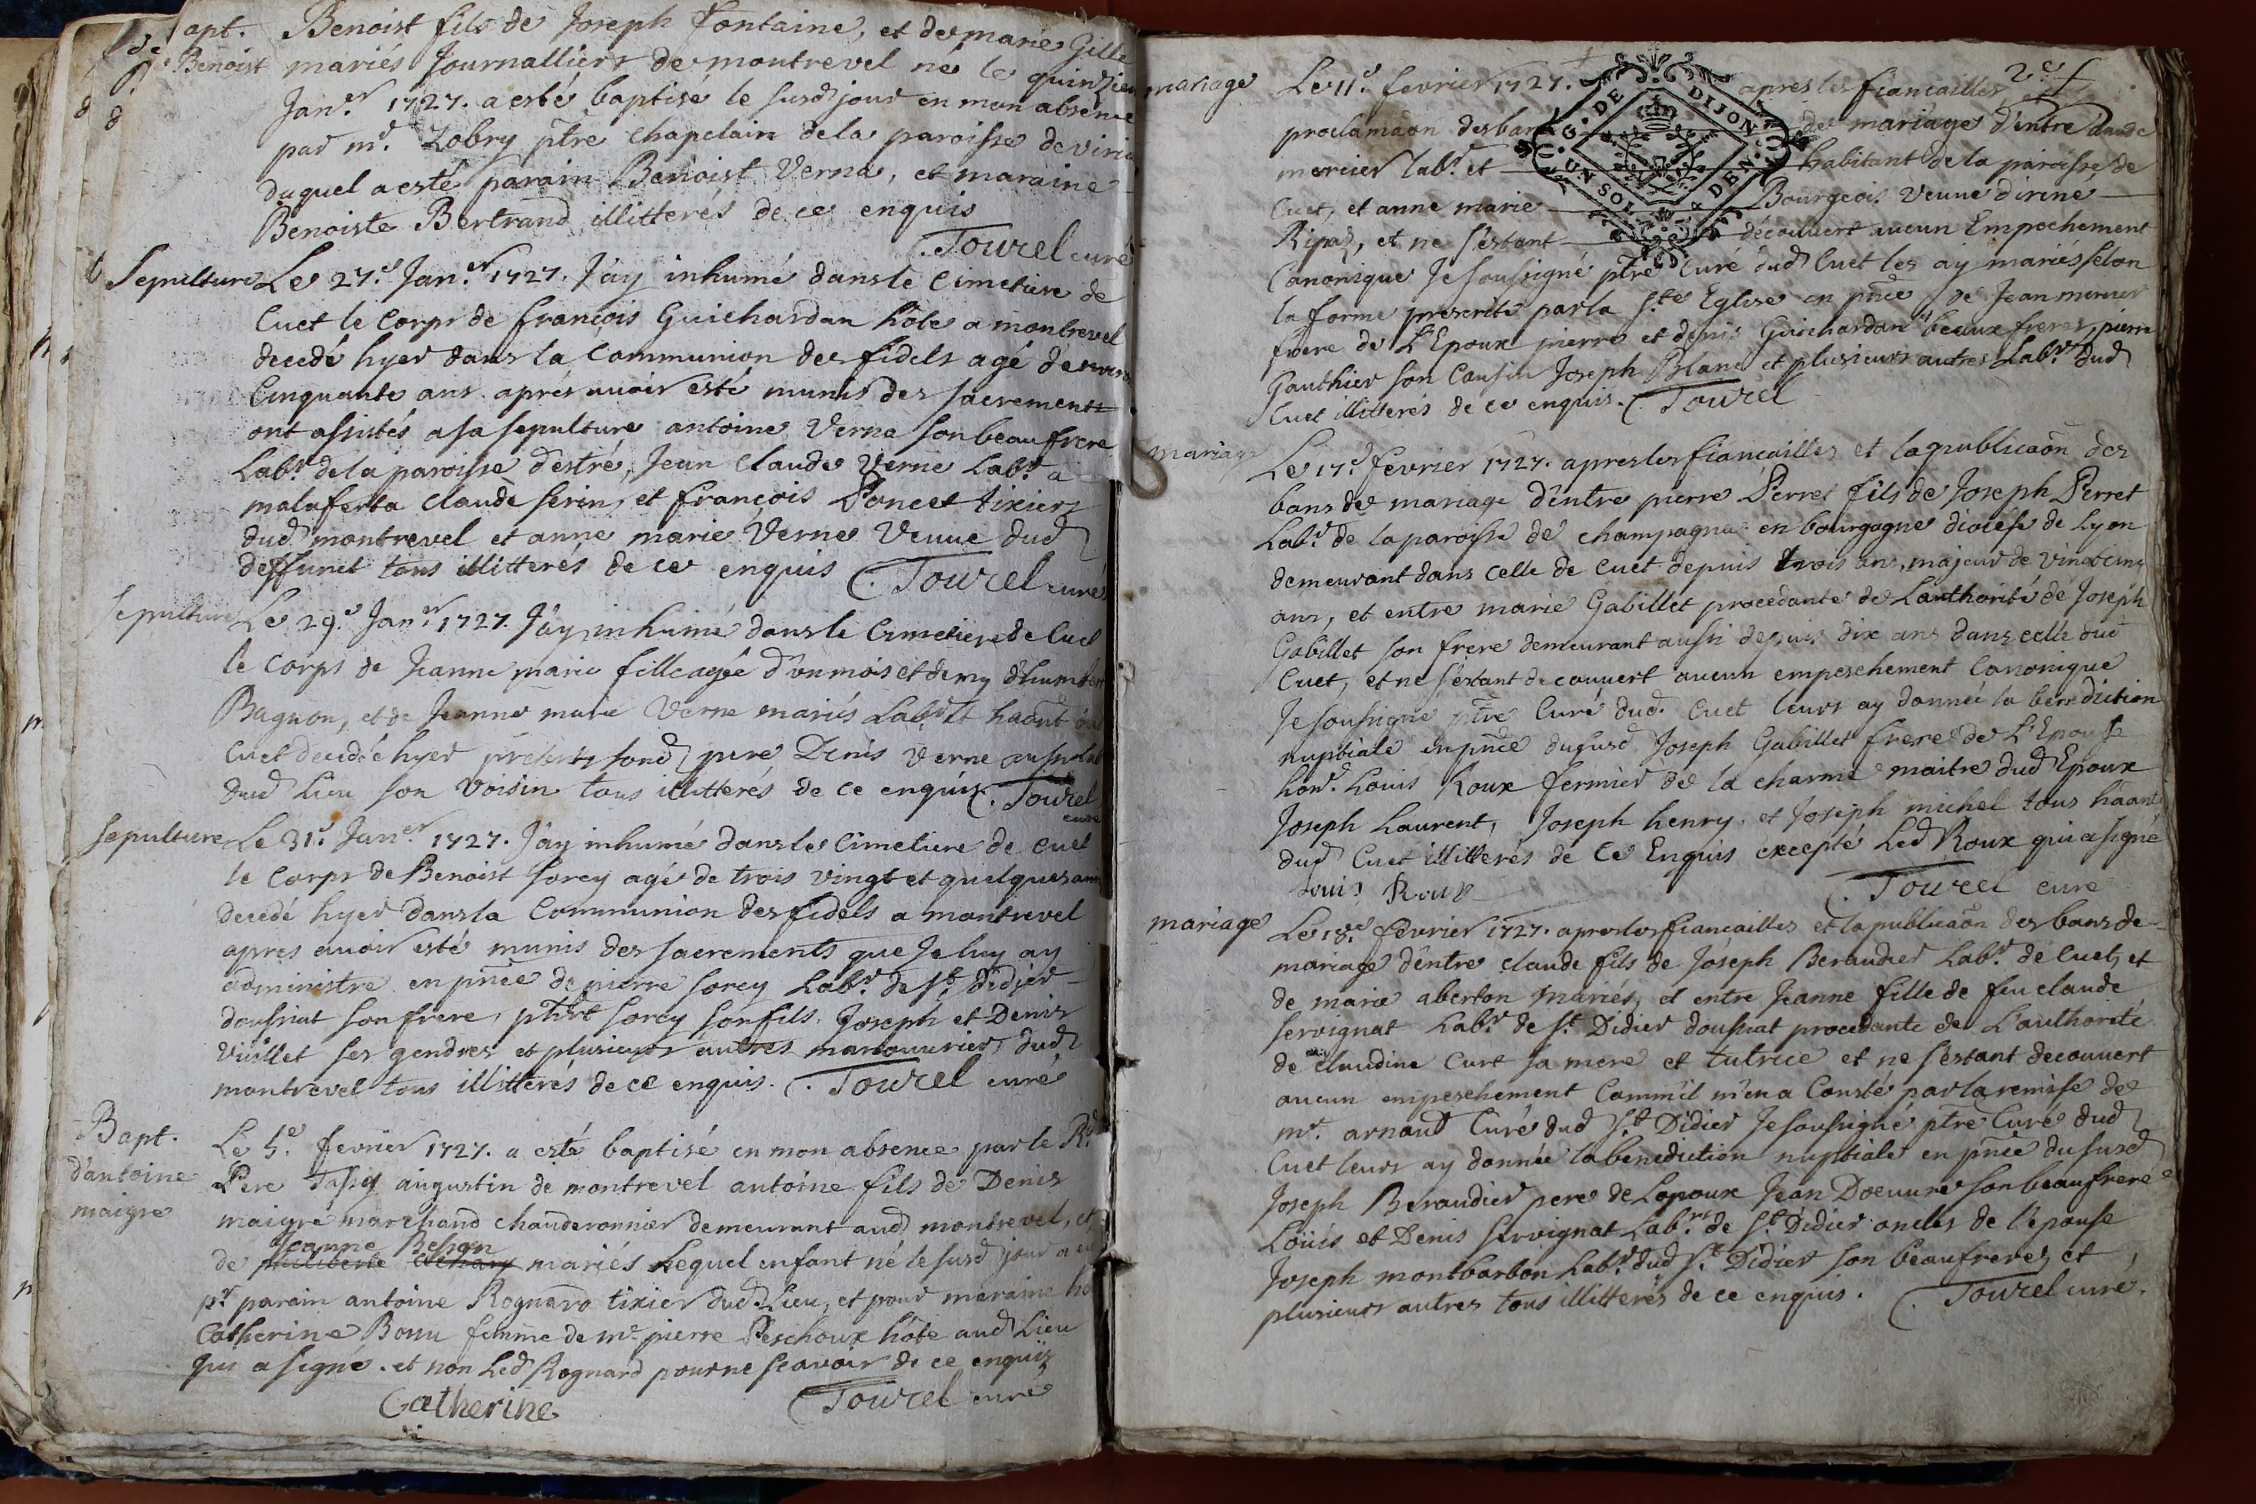 Bapt. Benoist fils de Joseph fontaine, et de marie Gille
Benoist mariés Journalliers de montrevel né le quinzieme
Jan.er 1727. a esté baptisé le susd jour en mon absence
par m.r Lobry ptre chapelain de la paroisse de
duquel a esté parain Benoist Verne, et maraine
Benoiste Bertrand illitterés de ce enquis
Tourel curé
Sepulture Le 27.e Jan.er 1727. J'ay inhumé dans le Cimetiere de
Cuet le Corps de françois Guichardan hôte a montrevel
decedé hyer dans la Communion des fidels agé de
Cinquante ans aprés avoir esté munis des sacrements
ont assistés a sa sepulture antoine Verne son beaufrere
Lab.r de la paroisse d'estré, Jean Claude Verne Lab.r a
malaferta Claude serin, et françois Poncet tixiers
dud montrevel et anne marie Verne Veuve dud
deffunct tous illitterés de ce enquis Tourel curé
sepulture Le 29.e Jan.er 1727. J'ay inhumé dans le Cimetiere de Cuet
le Corps de Jeanne marie fille agée d'un mois et demy d'humbert
Bagnon, et de Jeanne marie Verne mariés Lab.rs haant
Cuet decedée hyer presents sond pere Denis Verne aussi
dud Lieu son Voisin tous illitterés de ce enquis. Tourel
curé
sepulture Le 31.e Jan.er 1727. J'ay inhumé dans le Cimetiere de Cuet
le Corps de Benoist sorey agé de trois vingt et quelques ans
decedé hyer dans la Communion des fidels a montrevel
apres avoir esté munis des sacrements que Je luy ay
administre en pnce de pierre sorey Lab.r de s.t Didier
doussiat son frere, phbrt sorey son fils, Joseph et Denis
Viallet ses gendres et plusieurs autres manouvriers dud
montrevel tous illitterés de ce enquis. Tourel curé
Bapt. Le 5.e fevrier 1727. a esté baptisé en mon absence par le R.d
d'antoine Pere augustin de montrevel antoine fils de Denis
maigre maigre marchand chauderonnier demeurant aud montrevel, et
Jeanne Besson
de philiberte mariés Lequel enfant né le susd jour a eu
p.r parain antoine Rognard tixier dud Lieu, et pour maraine
Catherine Bonu femme de m.r pierre Perchoux hôte aud Lieu
qui a signé. et non Led Rognard pour ne sçavoir de ce enquis
Catherine Tourel curé
2.e f
mariage Le 11.e fevrier 1727. apres les fiancailles
proclamaon des bans de mariage d'entre Claude
mercier lab.r et habitant de la paroisse de
Cuet, et anne marie Bourgeois Veuve d'irene
Ripad, et ne s'estant découvert aucun Empechement
G. DE DIJON UN SOL 4 DEN.
Canonique Je soussigné ptre Curé dud Cuet les ay mariés selon
la forme prescrite par la s.te Eglise en pnce de Jean mercier
frere de L'Epoux pierre et denis Guichardan beaux freres, pierre
Gauthier son Cousin Joseph Blanc et plusieurs autres Lab.rs dud
Cuet illitterés de ce enquis. Tourel
mariage Le 17.e fevrier 1727. apres les fiancailles et la publicaon des
bans de mariage d'entre pierre Perret fils de Joseph Perret
Lab.r de la paroisse de champagna en bourgogne diocése de Lyon
demeurant dans celle de Cuet depuis trois ans, majeur de vingt cinq
ans, et entre marie Gabillet procedante de L'authorité de Joseph
Gabillet son frere demeurant aussi depuis dix ans dans celle dud
Cuet, et ne s'estant decouvert aucun empeschement Canonique
Je soussigné ptre Curé dud Cuet leurs ay donnée la benediction
nuptiale en pnce du susd Joseph Gabillet frere de L'Epouse
hon. Louis Roux fermier de la charme maitre dud Epoux
Joseph Laurent, Joseph henry et Joseph michel tous haants
dud Cuet illitterés de ce Enquis excepté Led Roux qui a signé
Louis Roux Tourel curé
mariage Le 18.e fevrier 1727. apres les fiancailles et la publicaon des bans de
mariage d'entre claude fils de Joseph Beraudier Lab.r de Cuet, et
de marie aberton mariés, et entre Jeanne fille de feu claude
servignat Lab.r de s.t Didier doussiat procedante de L'authorité
de Claudine Curt sa mere et tutrice et ne s'estant decouvert
aucun empeschement Comm'il m'en a Consté par la remise de
m.r arnaud Curé dud s.t Didier Je soussigné ptre Curé dud
Cuet leurs ay donnée la benediction nuptiale en pnce du susd
Joseph Beraudier pere de Lepoux Jean Doeuvre son beaufrere
Loüis et Denis servignat Lab.rs de s.t Didier oncles de l'epouse
Joseph montbarbon Lab.r dud s.t Didier son beaufrere, et
plusieurs autres tous illitterés de ce enquis. Tourel curé.